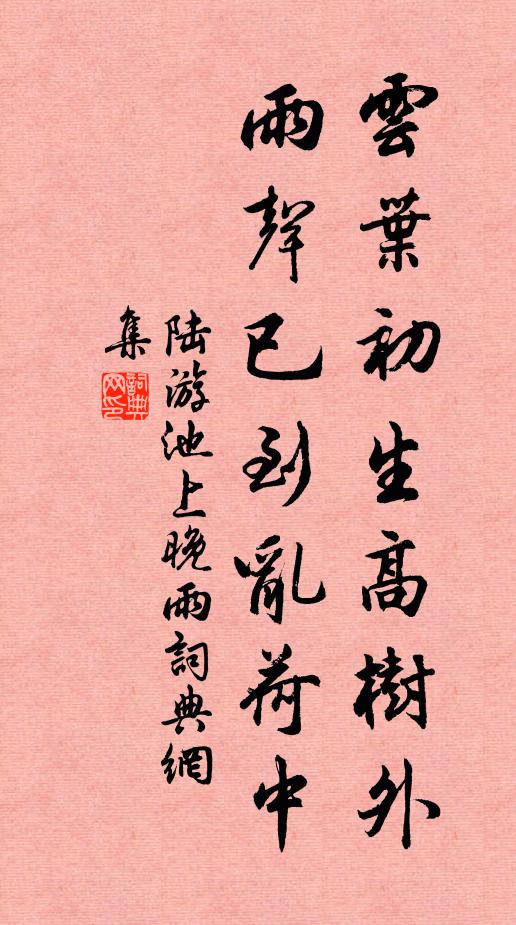 雲葉初生高樹外
雨聲已到亂荷中
陆游池上晚雨詞典網
集
詞典
网印